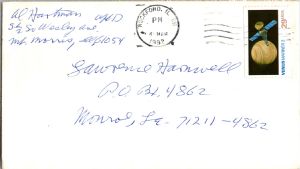 Al Hartman
So. Wesley Ave
Mt. Morris, Ill 61054
ROCKFORD, IL
PM
1992
29 USA
Lawrence Harnwell
P.O. Bx. 4862
Monroe, La. 71211-4862